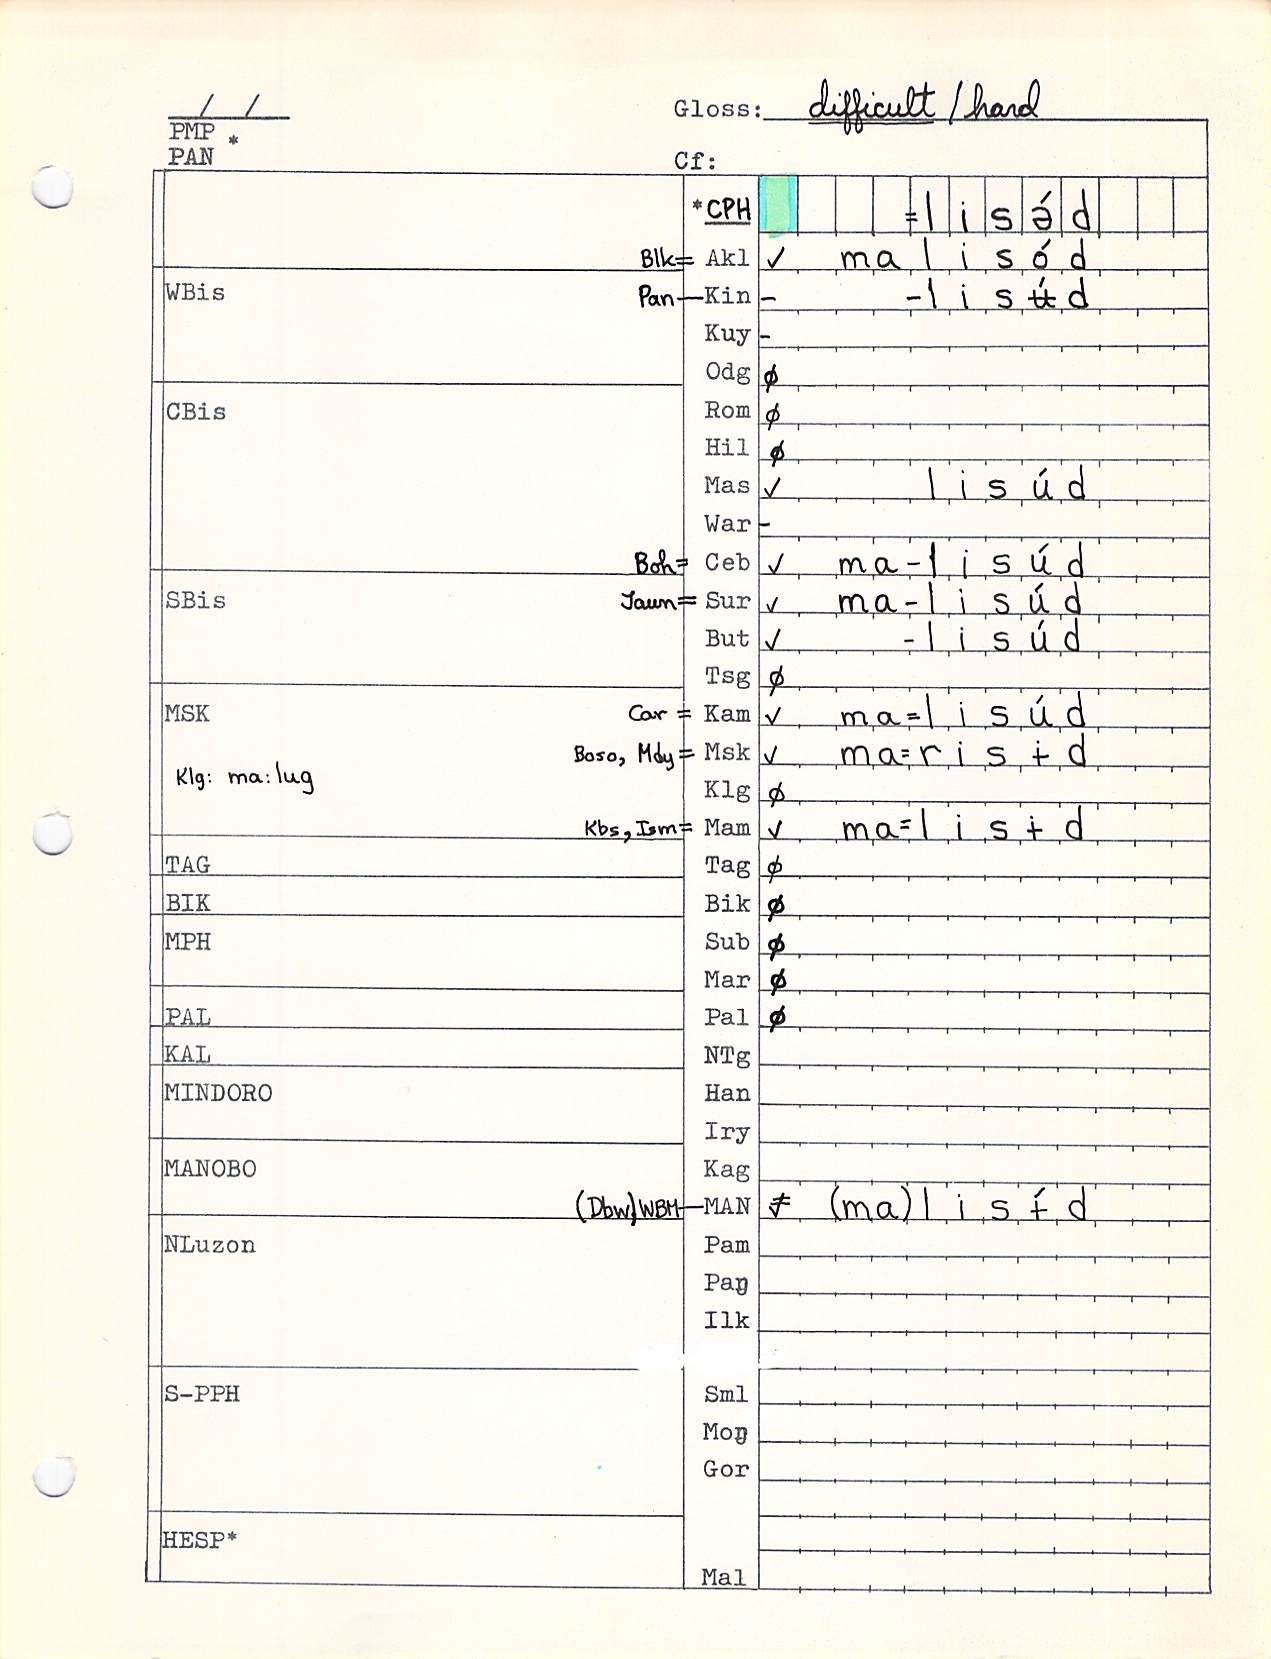 / / Gloss: difficult / hard
PMP *
PAN Cf:
*CPH =lisə́d
Blk= Akl ✓ malisód
WBis Pan—Kin - -lisʉ́d
Kuy -
Odg ø
CBis Rom ø
Hil ø
Mas ✓ lisúd
War -
Boh= Ceb ✓ ma-lisúd
SBis Jaun= Sur ✓ ma-lisúd
But ✓ -lisúd
Tsg ø
MSK Car = Kam ✓ ma=lisúd
Boso, Mdy= Msk ✓ ma=risɨd
Klg: ma:lug Klg ø
Kbs, Ism= Mam ✓ ma=lisɨd
TAG Tag ø
BIK Bik ø
MPH Sub ø
Mar ø
PAL Pal ø
KAL NTg
MINDORO Han
Iry
MANOBO Kag
(Dbw)WBM—MAN ≠ (ma)lisɨ́d
NLuzon Pam
Paŋ
Ilk
S-PPH Sml
Moŋ
Gor
HESP*
Mal